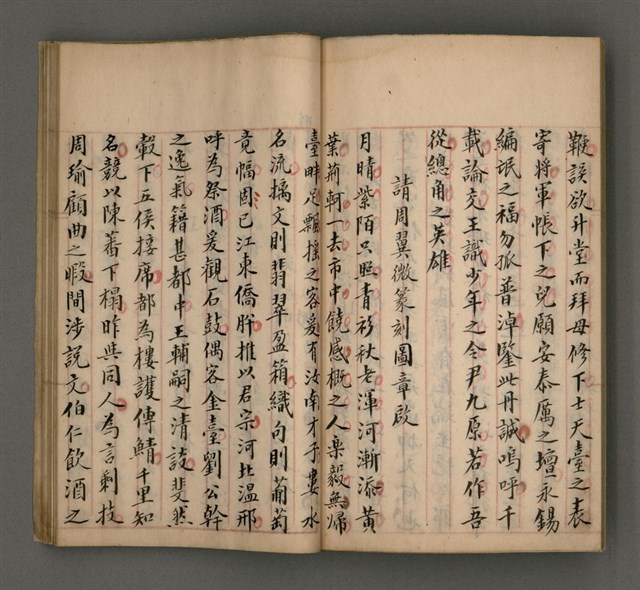 鞭誤欲升堂而拜母修下士天臺之表
寄將軍帳下之兒願安泰厲之壇永錫
編氓之福勿孤普淖鑒此丹誠嗚呼千
載論交王識少年之令尹九原若作吾
從總角之英雄
請周翼微篆刻圖章啟
月晴紫陌只照青衫秋老渾河漸添黃
葉荊軻一去市中饒感概之人樂毅無歸
臺畔足飄搖之客爰有汝南才子婁水
名流摛文則翡翠盈箱織句則葡萄
竟幅固已江東僑肸推以君宗河北溫邢
呼為祭酒爰觀石鼓偶客金臺劉公幹
之逸氣籍甚都中王輔嗣之清談斐然
轂下五侯接席都為樓護傳鯖千里知
名競以陳蕃下榻昨與同人為言剩技
周瑜顧曲之暇間涉說文伯仁飲酒之